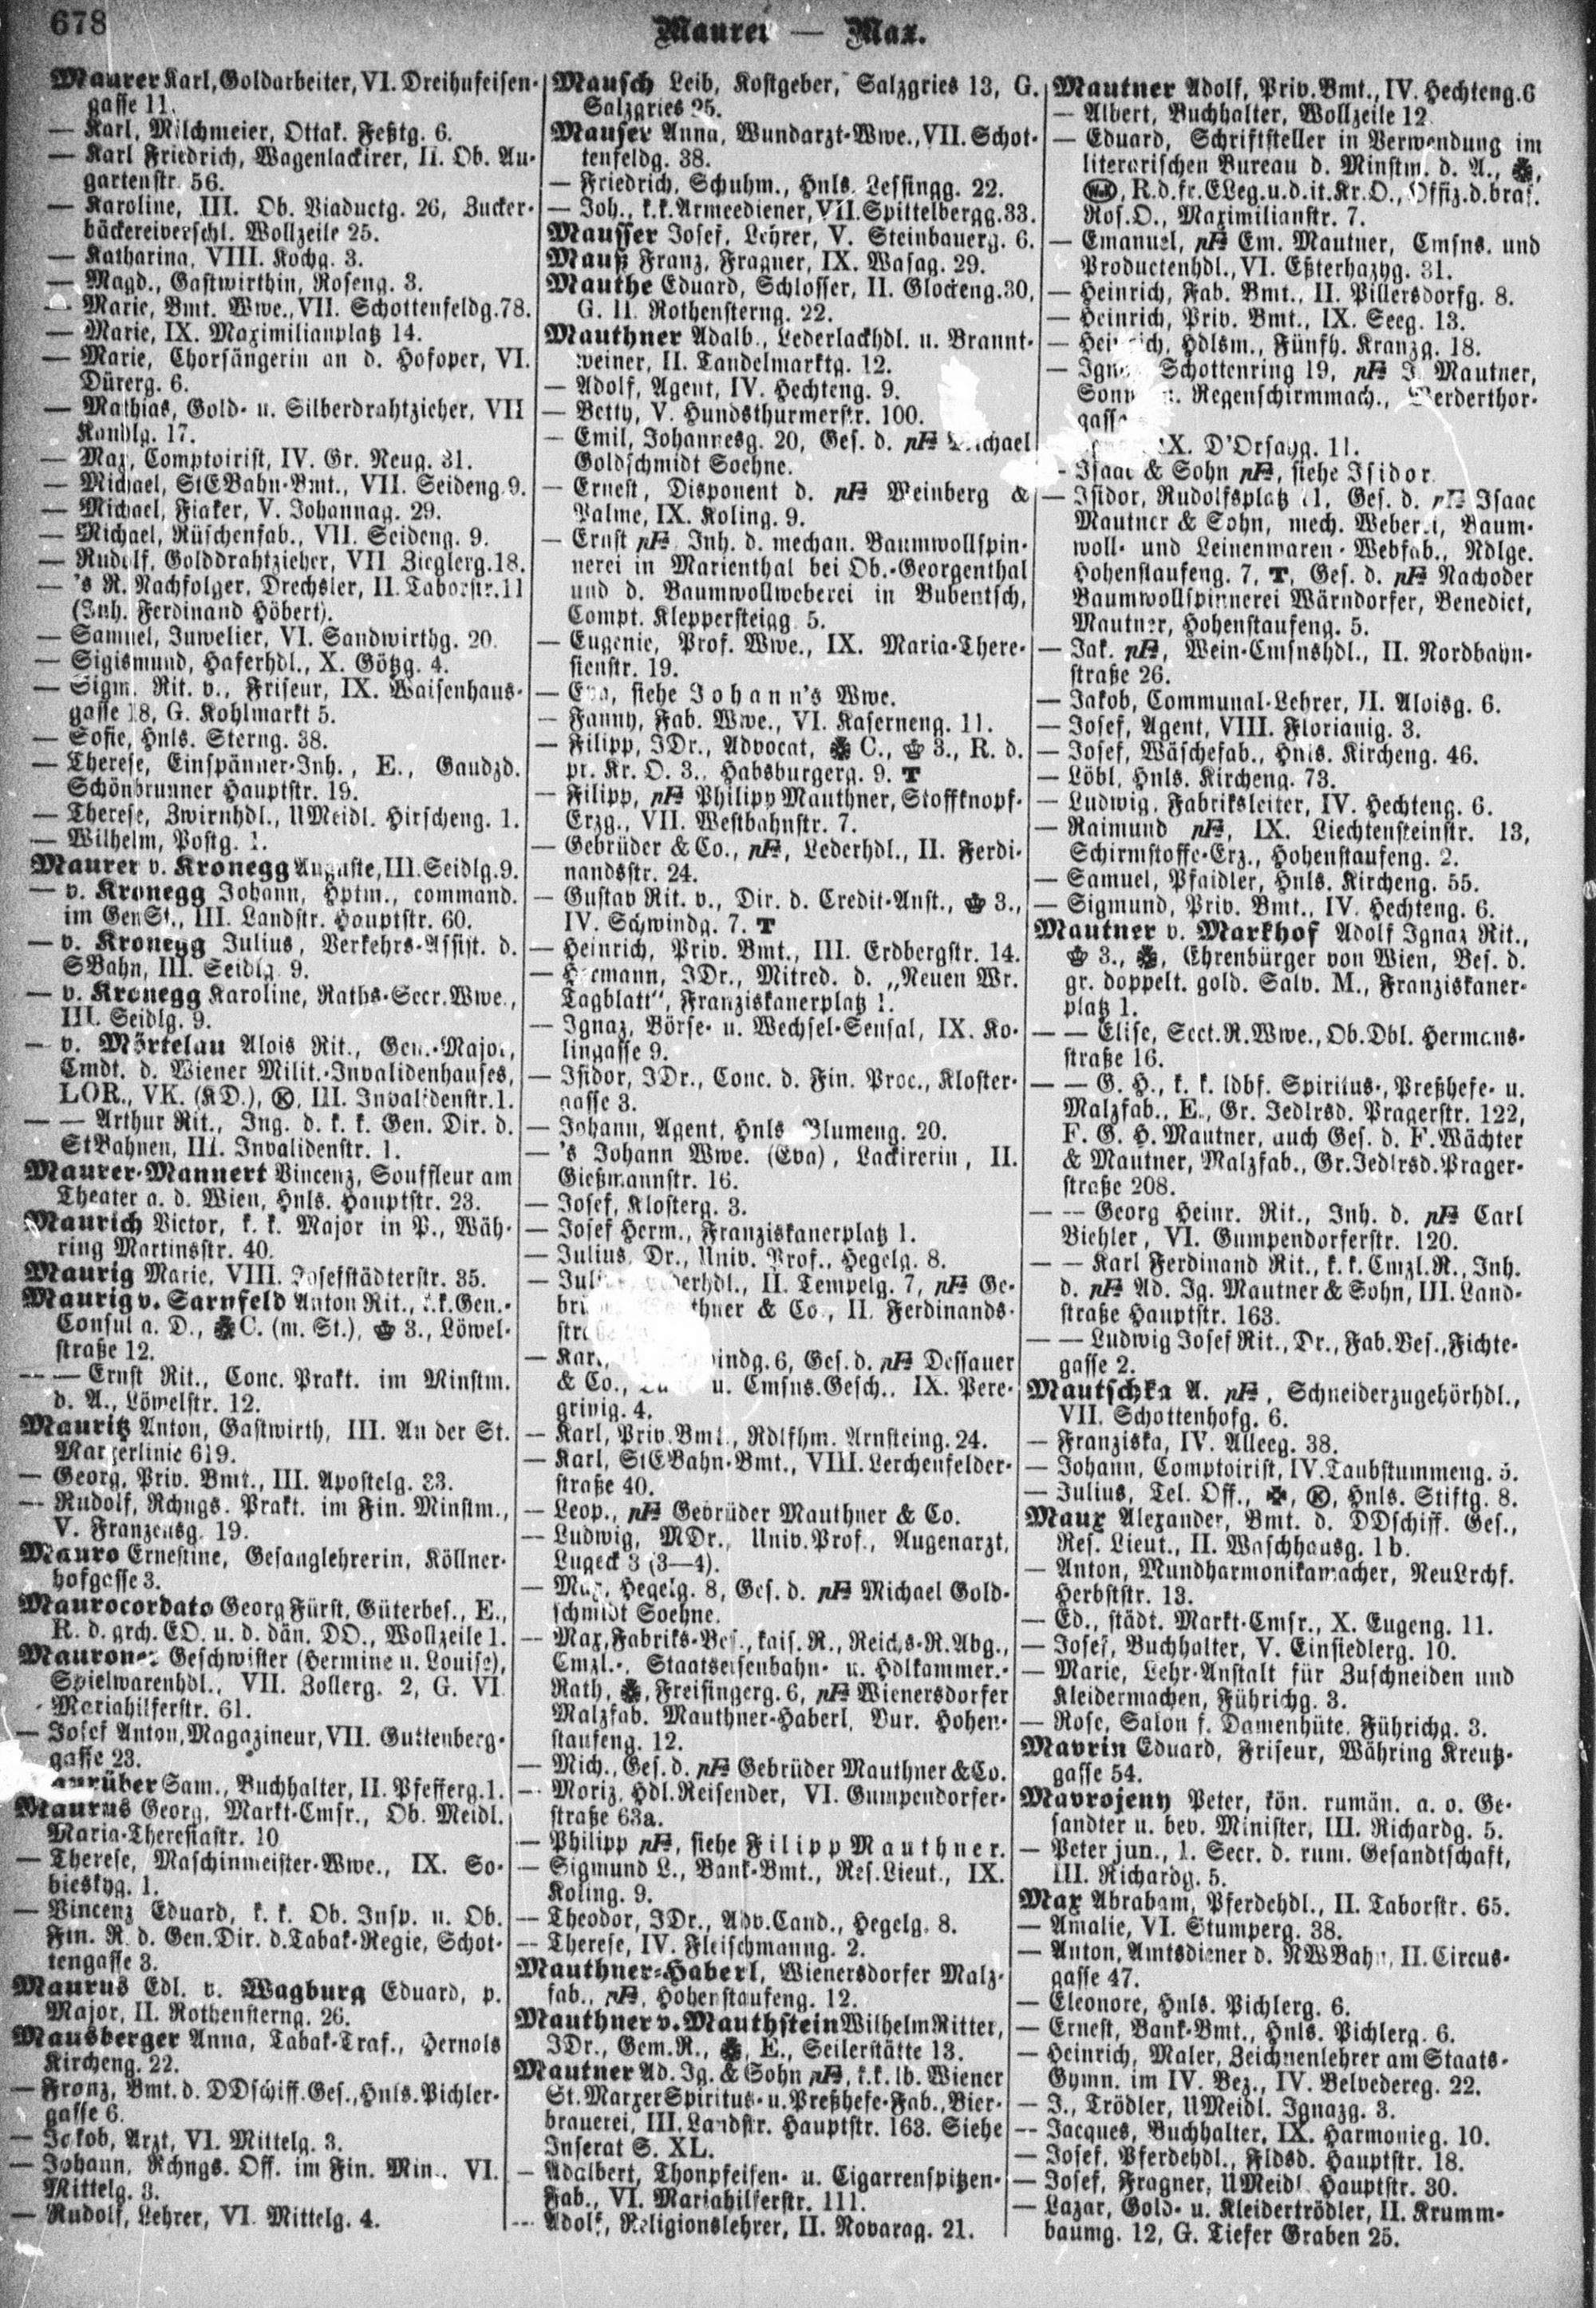 678
Maurer — Max.
Maurer Karl, Goldarbeiter, VI. Dreihufeisen-
gasse 11.
— Karl, Milchmeier, Ottak. Feßtg. 6.
— Karl Friedrich, Wagenlackirer, II. Ob. Au-
gartenstr. 56.
— Karoline, III. Ob. Viaductg. 26, Zucker-
bäckereiverschl. Wollzeile 25.
— Katharina, VIII. Kochg. 3.
— Magd., Gastwirthin, Roseng. 3.
— Marie, Bmt. Wwe., VII. Schottenfeldg. 78.
— Marie, IX. Maximilianplatz 14.
— Marie, Chorsängerin an d. Hofoper, VI.
Dürerg. 6.
— Mathias, Gold- u. Silberdrahtzieher, VII
Kandlg. 17.
— Max, Comptoirist, IV. Gr. Neug. 31.
— Michael, StEBahn-Bmt., VII. Seideng. 9.
— Michael, Fiaker, V. Johannag. 29.
— Michael, Rüschenfab., VII. Seideng. 9.
— Rudolf, Golddrahtzieher, VII Zieglerg. 18.
— 's R. Nachfolger, Drechsler, II. Taborstr. 11
(Inh. Ferdinand Höbert).
— Samuel, Juwelier, VI. Sandwirthg. 20.
— Sigismund, Haferhdl., X. Götzg. 4.
— Sigm. Rit. v., Friseur, IX. Waisenhaus-
gasse 18, G. Kohlmarkt 5.
— Sofie, Hnls. Sterng. 38.
— Therese, Einspänner-Inh., E., Gaudzd.
Schönbrunner Hauptstr. 19.
— Therese, Zwirnhdl., UMeidl. Hirscheng. 1.
— Wilhelm, Postg. 1.
Maurer v. Kronegg Auguste, III. Seidlg. 9.
— v. Kronegg Johann, Hptm., command.
im GenSt., III. Landstr. Hauptstr. 60.
— v. Kronegg Julius, Verkehrs-Assist. d.
SBahn, III. Seidlg. 9.
— v. Kronegg Karoline, Raths-Secr. Wwe.,
III. Seidlg. 9.
— v. Mörtelau Alois Rit., Gen.-Major,
Cmdt. d. Wiener Milit.-Invalidenhauses,
LOR., VK. (KD.), Ⓚ, III. Invalidenstr. 1.
— — Arthur Rit., Ing. d. k. k. Gen. Dir. d.
StBahnen, III. Invalidenstr. 1.
Maurer-Mannert Vincenz, Souffleur am
Theater a. d. Wien, Hnls. Hauptstr. 23.
Maurich Victor, k. k. Major in P., Wäh-
ring Martinsstr. 40.
Maurig Marie, VIII. Josefstädterstr. 35.
Maurig v. Sarnfeld Anton Rit., k. k. Gen.-
Consul a. D., C. (m. St.), 3., Löwel-
straße 12.
— — Ernst Rit., Conc. Prakt. im Minstm.
d. A., Löwelstr. 12.
Mauritz Anton, Gastwirth, III. An der St.
Marxerlinie 619.
— Georg, Priv. Bmt., III. Apostelg. 23.
— Rudolf, Rchngs. Prakt. im Fin. Minstm.,
V. Franzensg. 19.
Mauro Ernestine, Gesanglehrerin, Köllner-
hofgasse 3.
Maurocordato Georg Fürst, Güterbes., E.,
R. d. grch. EO. u. d. dän. DO., Wollzeile 1.
Mauroner Geschwister (Hermine u. Louise),
Spielwarenhdl., VII. Zollerg. 2, G. VI.
Mariahilferstr. 61.
— Josef Anton, Magazineur, VII. Guttenberg-
gasse 23.
aurüber Sam., Buchhalter, II. Pfefferg. 1.
Maurus Georg, Markt-Cmsr., Ob. Meidl.
Maria-Theresiastr. 10
— Therese, Maschinmeister-Wwe., IX. So-
bieskyg. 1.
— Vincenz Eduard, k. k. Ob. Insp. u. Ob.
Fin. R. d. Gen. Dir. d. Tabak-Regie, Schot-
tengasse 3.
Maurus Edl. v. Wagburg Eduard, p.
Major, II. Rothensterng. 26.
Mausberger Anna, Tabak-Traf., Hernals
Kircheng. 22.
— Franz, Bmt. d. DDschiff. Ges., Hnls. Pichler-
gasse 6.
— Jakob, Arzt, VI. Mittelg. 3.
— Johann, Rchngs. Off. im Fin. Min., VI.
Mittelg. 3.
— Rudolf, Lehrer, VI. Mittelg. 4.
Mausch Leib, Kostgeber, Salzgries 13, G.
Salzgries 25.
Mauser Anna, Wundarzt-Wwe., VII. Schot-
tenfeldg. 38.
— Friedrich, Schuhm., Hnls. Lessingg. 22.
— Joh., k. k. Armeediener, VII. Spittelbergg. 33.
Mausser Josef, Lehrer, V. Steinbauerg. 6.
Mauß Franz, Fragner, IX. Wasag. 29.
Mauthe Eduard, Schlosser, II. Glockeng. 30,
G. II. Rothensterng. 22.
Mauthner Adalb., Lederlackhdl. u. Brannt-
weiner, II. Tandelmarktg. 12.
— Adolf, Agent, IV. Hechteng. 9.
— Betty, V. Hundsthurmerstr. 100.
— Emil, Johannesg. 20, Ges. d. pF Michael
Goldschmidt Soehne.
— Ernest, Disponent d. pF Weinberg &
Palme, IX. Koling. 9.
— Ernst pF Inh. d. mechan. Baumwollspin-
nerei in Marienthal bei Ob.-Georgenthal
und d. Baumwollweberei in Bubentsch,
Compt. Kleppersteigg. 5.
— Eugenie, Prof. Wwe., IX. Maria-There-
sienstr. 19.
— Eva, siehe Johann's Wwe.
— Fanny, Fab. Wwe., VI. Kaserneng. 11.
— Filipp, JDr., Advocat, C., 3., R. d.
pr. Kr. O. 3., Habsburgerg. 9. T
— Filipp, pF Philipp Mauthner, Stoffknopf-
Erzg., VII. Westbahnstr. 7.
— Gebrüder & Co., pF, Lederhdl., II. Ferdi-
nandsstr. 24.
— Gustav Rit. v., Dir. d. Credit-Anst., 3.,
IV. Schwindg. 7. T
— Heinrich, Priv. Bmt., III. Erdbergstr. 14.
— Hermann, JDr., Mitred. d. „Neuen Wr.
Tagblatt“, Franziskanerplatz 1.
— Ignaz, Börse- u. Wechsel-Sensal, IX. Ko-
lingasse 9.
— Isidor, JDr., Conc. d. Fin. Proc., Kloster-
gasse 3.
— Johann, Agent, Hnls. Blumeng. 20.
— 's Johann Wwe. (Eva), Lackirerin, II.
Gießmannstr. 16.
— Josef, Klosterg. 3.
— Josef Herm., Franziskanerplatz 1.
— Julius, Dr., Univ. Prof., Hegelg. 8.
— Julius, Lederhdl., II. Tempelg. 7, pF Ge-
brüder Mauthner & Co., II. Ferdinands-
— Karl, indg. 6, Ges. d. pF Dessauer
& Co., u. Cmsns. Gesch., IX. Pere-
grinig. 4.
— Karl, Priv. Bmt., Rdlfhm. Arnsteing. 24.
— Karl, StEBahn-Bmt., VIII. Lerchenfelder-
straße 40.
— Leop., pF Gebrüder Mauthner & Co.
— Ludwig, MDr., Univ. Prof., Augenarzt,
Lugeck 3 (3—4).
— Max, Hegelg. 8, Ges. d. pF Michael Gold-
schmidt Soehne.
— Max, Fabriks-Bes., kais. R., Reichs-R. Abg.,
Cmzl.-, Staatseisenbahn- u. Hdlkammer.-
Rath, Freisingerg. 6, pF Wienersdorfer
Malzfab. Mauthner-Haberl, Bur. Hohen-
staufeng. 12.
— Mich., Ges. d. pF Gebrüder Mauthner & Co.
— Moriz, Hdl. Reisender, VI. Gumpendorfer-
straße 63a.
— Philipp pF, siehe Filipp Mauthner.
— Sigmund L., Bank-Bmt., Res. Lieut., IX.
Koling. 9.
— Theodor, JDr., Adv. Cand., Hegelg. 8.
— Therese, IV. Fleischmanng. 2.
Mauthner-Haberl, Wienersdorfer Malz-
fab., pF, Hohenstaufeng. 12.
Mauthner v. Mauthstein Wilhelm Ritter,
JDr., Gem. R., E., Seilerstätte 13.
Mautner Ad. Ig. & Sohn pF, k. k. lb. Wiener
St. Marxer Spiritus- u. Preßhefe-Fab., Bier-
brauerei, III. Landstr. Hauptstr. 163. Siehe
Inserat S. XL.
— Adalbert, Thonpfeifen- u. Cigarrenspitzen-
Fab., VI. Mariahilferstr. 111.
— Adolf, Religionslehrer, II. Novarag. 21.
Mautner Adolf, Priv. Bmt., IV. Hechteng. 6
— Albert, Buchhalter, Wollzeile 12.
— Eduard, Schriftsteller in Verwendung im
literarischen Bureau d. Minstm. d. A.,
R. d. fr. ELeg. u. d. it. Kr. O., Offiz. d. bras.
Ros. O., Maximilianstr. 7.
— Emanuel, pF Em. Mautner, Cmsns. und
Productenhdl., VI. Eßterhazyg. 31.
— Heinrich, Fab. Bmt., II. Pillersdorfg. 8.
— Heinrich, Priv. Bmt., IX. Seeg. 13.
— Heinrich, Hdlsm., Fünfh. Kranzg. 18.
— Ignaz, Schottenring 19, pF J. Mautner,
Sonn- u. Regenschirmmach., Werderthor-
gasse
IX. D'Orsayg. 11.
— Isaac & Sohn pF, siehe Isidor.
— Isidor, Rudolfsplatz 11, Ges. d. pF Isaac
Mautner & Sohn, mech. Weberei, Baum-
woll- und Leinenwaren-Webfab., Ndlge.
Hohenstaufeng. 7, T, Ges. d. pF Nachoder
Baumwollspinnerei Wärndorfer, Benedict,
Mautner, Hohenstaufeng. 5.
— Jak. pF, Wein-Cmsnshdl., II. Nordbahn-
straße 26.
— Jakob, Communal-Lehrer, II. Aloisg. 6.
— Josef, Agent, VIII. Florianig. 3.
— Josef, Wäschefab., Hnls. Kircheng. 46.
— Löbl, Hnls. Kircheng. 73.
— Ludwig, Fabriksleiter, IV. Hechteng. 6.
— Raimund pF, IX. Liechtensteinstr. 13,
Schirmstoffe-Erz., Hohenstaufeng. 2.
— Samuel, Pfaidler, Hnls. Kircheng. 55.
— Sigmund, Priv. Bmt., IV. Hechteng. 6.
Mautner v. Markhof Adolf Ignaz Rit.,
3., Ehrenbürger von Wien, Bes. d.
gr. doppelt. gold. Salv. M., Franziskaner-
platz 1.
— — Elise, Sect. R. Wwe., Ob. Dbl. Hermans-
straße 16.
— — G. H., k. k. ldbf. Spiritus-, Preßhefe- u.
Malzfab., E., Gr. Jedlrsd. Pragerstr. 122,
F. G. H. Mautner, auch Ges. d. F. Wächter
& Mautner, Malzfab., Gr. Jedlrsd. Prager-
straße 208.
— — Georg Heinr. Rit., Inh. d. pF Carl
Biehler, VI. Gumpendorferstr. 120.
— — Karl Ferdinand Rit., k. k. Cmzl. R., Inh.
d. pF Ad. Ig. Mautner & Sohn, III. Land-
straße Hauptstr. 163.
— — Ludwig Josef Rit., Dr., Fab. Bes., Fichte-
gasse 2.
Mautschka A. pF, Schneiderzugehörhdl.,
VII. Schottenhofg. 6.
— Franziska, IV. Alleeg. 38.
— Johann, Comptoirist, IV. Taubstummeng. 5.
— Julius, Tel. Off., Ⓚ, Hnls. Stiftg. 8.
Maux Alexander, Bmt. d. DDschiff. Ges.,
Res. Lieut., II. Waschhausg. 1b.
— Anton, Mundharmonikamacher, NeuLrchf.
Herbststr. 13.
— Ed., städt. Markt-Cmsr., X. Eugeng. 11.
— Josef, Buchhalter, V. Einsiedlerg. 10.
— Marie, Lehr-Anstalt für Zuschneiden und
Kleidermachen, Führichg. 3.
— Rose, Salon f. Damenhüte, Führichg. 3.
Mavrin Eduard, Friseur, Währing Kreutz-
gasse 54.
Mavrojeny Peter, kön. rumän. a. o. Ge-
sandter u. bev. Minister, III. Richardg. 5.
— Peter jun., 1. Secr. d. rum. Gesandtschaft,
III. Richardg. 5.
Max Abraham, Pferdehdl., II. Taborstr. 65.
— Amalie, VI. Stumperg. 38.
— Anton, Amtsdiener d. NWBahn, II. Circus-
gasse 47.
— Eleonore, Hnls. Pichlerg. 6.
— Ernest, Bank-Bmt., Hnls. Pichlerg. 6.
— Heinrich, Maler, Zeichnenlehrer am Staats-
Gymn. im IV. Bez., IV. Belvedereg. 22.
— J., Trödler, UMeidl. Ignazg. 3.
— Jacques, Buchhalter, IX. Harmonieg. 10.
— Josef, Pferdehdl., Fldsd. Hauptstr. 18.
— Josef, Fragner, UMeidl. Hauptstr. 30.
— Lazar, Gold- u. Kleidertrödler, II. Krumm-
baumg. 12, G. Tiefer Graben 25.